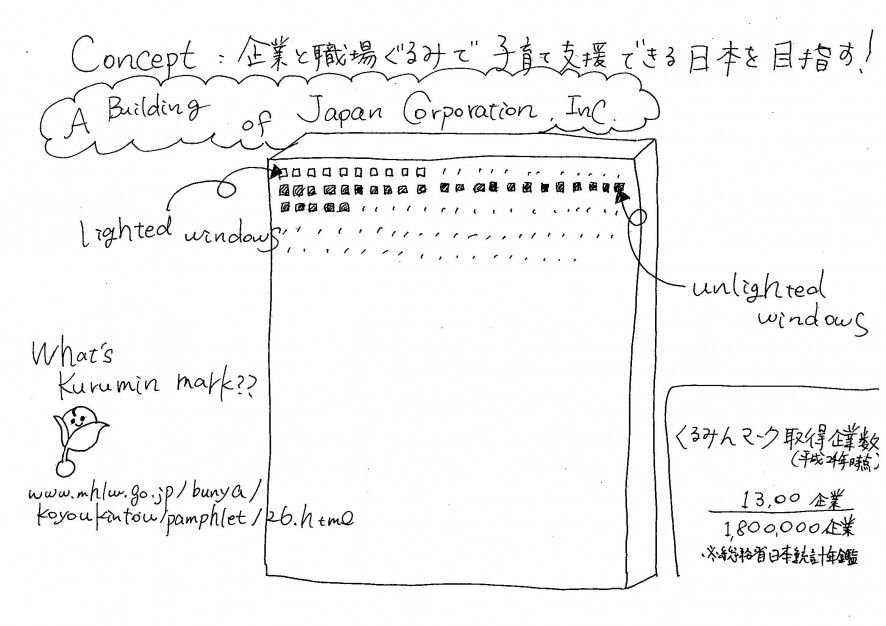 Concept : 企業と職場ぐるみで 子育て支援できる日本を目指す!
A Building of Japan Corporation, Inc.
lighted windows
unlighted
windows
What's
Kurumin mark??
www.mhlw.go.jp/bunya/
koyoukintou/pamphlet/26.html
くるみんマーク取得企業数
(平成24年時点)
13,00 企業
1,800,000企業
※総務省日本統計年鑑